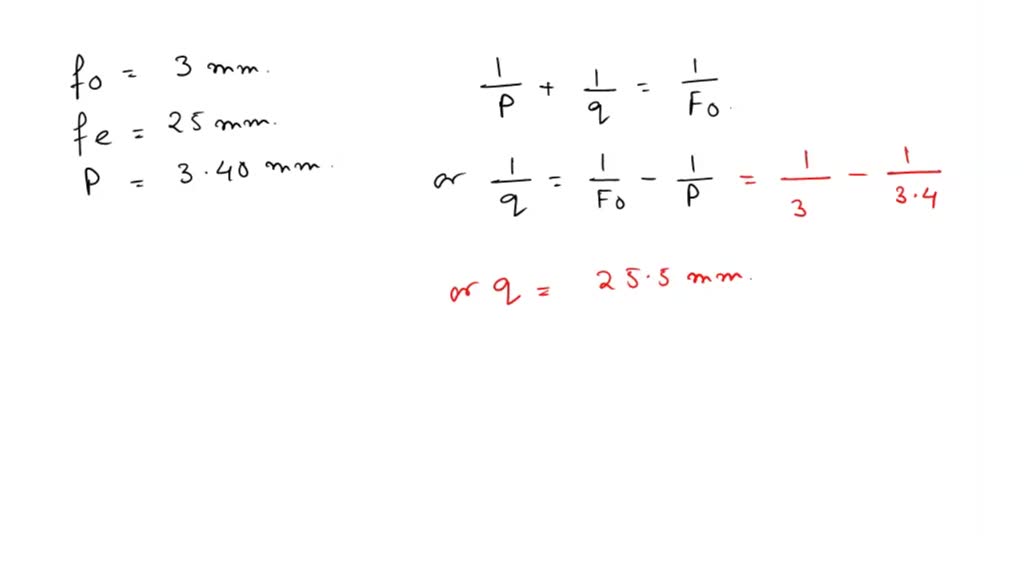 fo = 3 mm.
fe = 25 mm.
P = 3.40 mm.
1/P + 1/q = 1/Fo.
or 1/q = 1/Fo - 1/P = 1/3 - 1/3.4
or q = 25.5 mm.